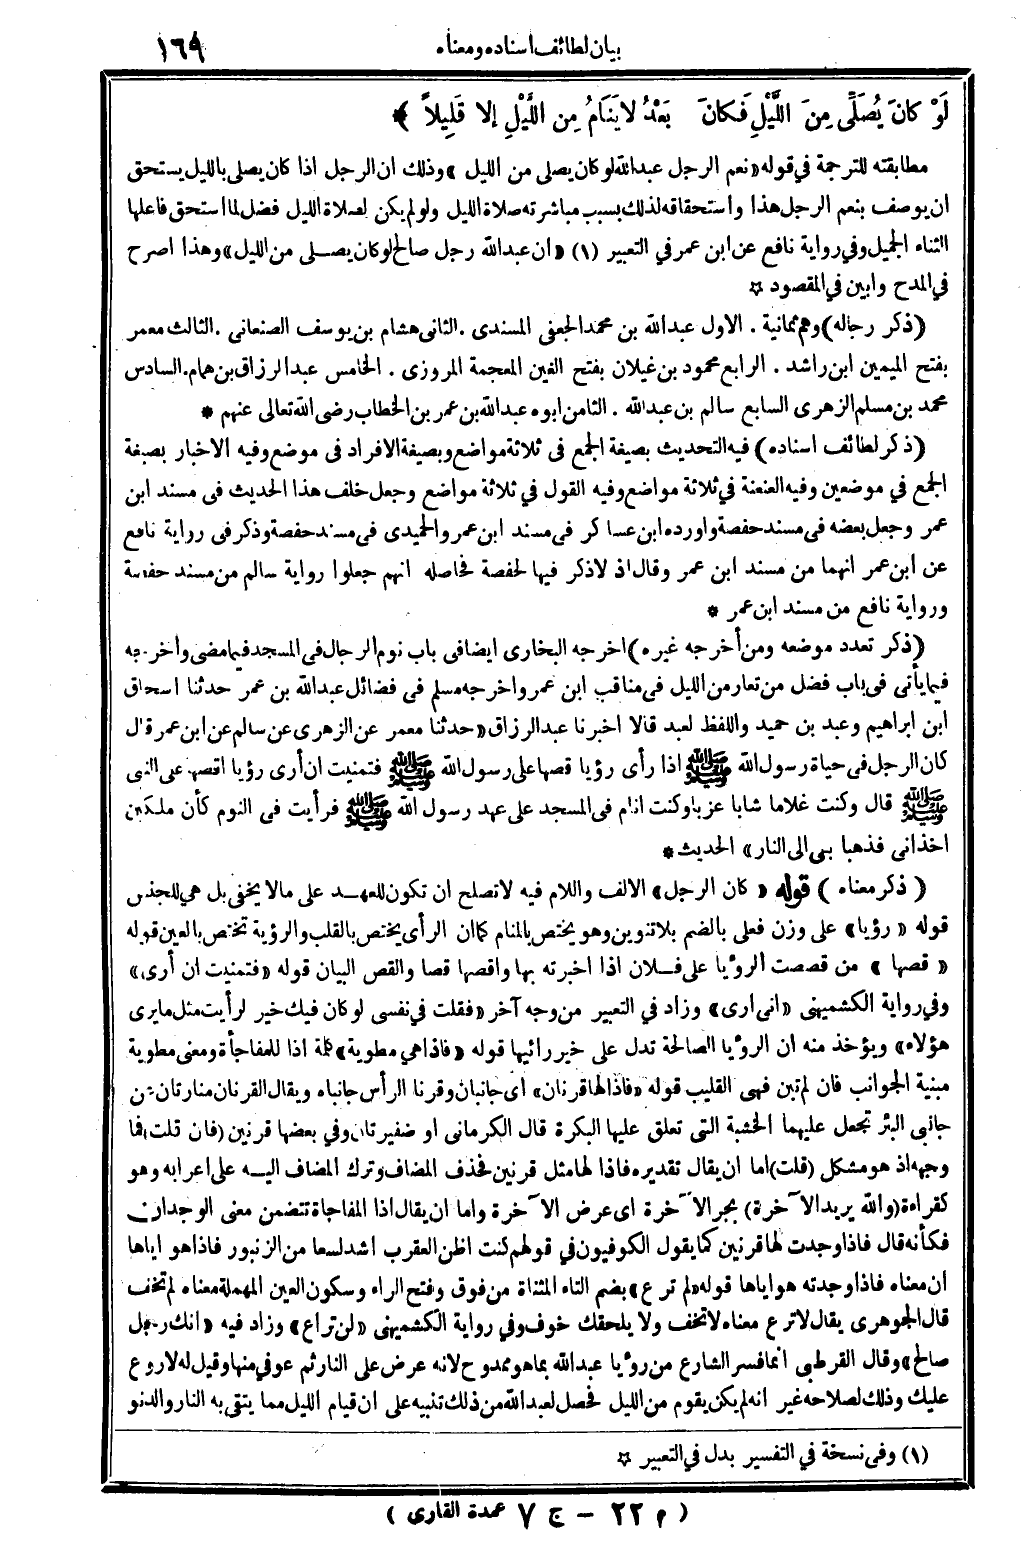 بيان لطائف اسناده ومعناه
١٦٩
لَوْ كانَ يُصَلِّى مِنَ اللَّيْلِ فَكانَ بَعْدُ لا يَنَامُ مِن اللَّيْلِ إلا قَلِيلاً ﴾
مطابقته للترجمة في قوله «نعم الرجل عبدالله لو كان يصلى من الليل» وذلك ان الرجل اذا كان يصلى بالليل يستحق
ان يوصف بنعم الرجل هذا واستحقاقه لذلك بسبب مباشرته صلاة الليل ولو لم يكن لصلاة الليل فضل لما استحق فاعلها
الثناء الجميل وفي رواية نافع عن ابن عمر في التعبير (١) «ان عبدالله رجل صالح لو كان يصلى من الليل» وهذا اصرح
في المدح وابين في المقصود ☆
(ذكر رجاله) وهم ثمانية . الاول عبدالله بن محمد الجعفي المسندى . الثانى هشام بن يوسف الصنعانى . الثالث معمر
بفتح الميمين ابن راشد . الرابع محمود بن غيلان بفتح الغين المعجمة المروزى . الخامس عبدالرزاق بن همام . السادس
محمد بن مسلم الزهرى السابع سالم بن عبدالله . الثامن ابوه عبدالله بن عمر بن الخطاب رضى الله تعالى عنهم *
(ذكر لطائف اسناده) فيه التحديث بصيغة الجمع فى ثلاثة مواضع وبصيغة الافراد فى موضع وفيه الاخبار بصيغة
الجمع في موضعين وفيه العنعنة في ثلاثة مواضع وفيه القول في ثلاثة مواضع وجعل خلف هذا الحديث فى مسند ابن
عمر وجعل بعضه فى مسند حفصة واورده ابن عساكر فى مسند ابن عمر والحميدى فى مسند حفصة وذكر فى رواية نافع
عن ابن عمر انهما من مسند ابن عمر وقال اذ لا ذكر فيها لحفصة فحاصله انهم جعلوا رواية سالم من مسند حفصة
ورواية نافع من مسند ابن عمر *
(ذكر تعدد موضعه ومن أخرجه غيره) اخرجه البخارى ايضا فى باب نوم الرجال فى المسجد فيما مضى واخرجه
فيما يأتى فى باب فضل من تعار من الليل فى مناقب ابن عمر واخرجه مسلم فى فضائل عبدالله بن عمر حدثنا اسحاق
ابن ابراهيم وعبد بن حميد واللفظ لعبد قالا اخبرنا عبدالرزاق «حدثنا معمر عن الزهرى عن سالم عن ابن عمر قال
كان الرجل فى حياة رسول الله ﷺ اذا رأى رؤيا قصها على رسول الله ﷺ فتمنيت ان أرى رؤيا اقصها على النبى
ﷺ قال وكنت غلاما شابا عزبا وكنت انام فى المسجد على عهد رسول الله ﷺ فرأيت فى النوم كأن ملكين
اخذانى فذهبا بى الى النار» الحديث *
(ذكر معناه) قوله «كان الرجل» الالف واللام فيه لا تصلح ان تكون للعهد على مالا يخفى بل هى للجنس
قوله «رؤيا» على وزن فعلى بالضم بلا تنوين وهو يختص بالمنام كما ان الرأى يختص بالقلب والرؤية تختص بالعين قوله
«قصها» من قصصت الرؤيا على فلان اذا اخبرته بها واقصها قصا والقص البيان قوله «فتمنيت ان أرى»
وفي رواية الكشميهنى «انى ارى» وزاد في التعبير من وجه آخر «فقلت في نفسى لو كان فيك خير لرأيت مثل ما يرى
هؤلاء» ويؤخذ منه ان الرؤيا الصالحة تدل على خير رائيها قوله «فاذا هي مطوية» كلمة اذا للمفاجأة ومعنى مطوية
مبنية الجوانب فان لم تبن فهى القليب قوله «فاذا لها قرنان» اى جانبان وقرنا الرأس جانباه ويقال القرنان منارتان عن
جانبى البئر تجعل عليهما الخشبة التى تعلق عليها البكرة قال الكرمانى او ضفيرتان وفي بعضها قرنين (فان قلت) فما
وجهه اذ هو مشكل (قلت) اما ان يقال تقديره فاذا لها مثل قرنين فحذف المضاف وترك المضاف اليه على اعرابه وهو
كقراءة (والله يريد الآخرة) بجر الآخرة اى عرض الآخرة واما ان يقال اذا المفاجاة تتضمن معنى الوجدان
فكأنه قال فاذا وجدت لها قرنين كما يقول الكوفيون في قولهم كنت اظن العقرب اشد لسعا من الزنبور فاذا هو اياها
ان معناه فاذا وجدته هو اياها قوله «لم ترع» بضم التاء المثناة من فوق وفتح الراء وسكون العين المهملة معناه لم تخف
قال الجوهرى يقال لا ترع معناه لا تخف ولا يلحقك خوف وفي رواية الكشميهنى «لن تراع» وزاد فيه «انك رجل
صالح» وقال القرطبى انما فسر الشارع من رؤيا عبدالله بما هو ممدوح لانه عرض على النار ثم عوفي منها وقيل له لا روع
عليك وذلك لصلاحه غير انه لم يكن يقوم من الليل فحصل لعبدالله من ذلك تنبيه على ان قيام الليل مما يتقى به النار والدنو
(١) وفى نسخة في التفسير بدل في التعبير ☆
(م ٢٢ - ج ٧ عمدة القارى)